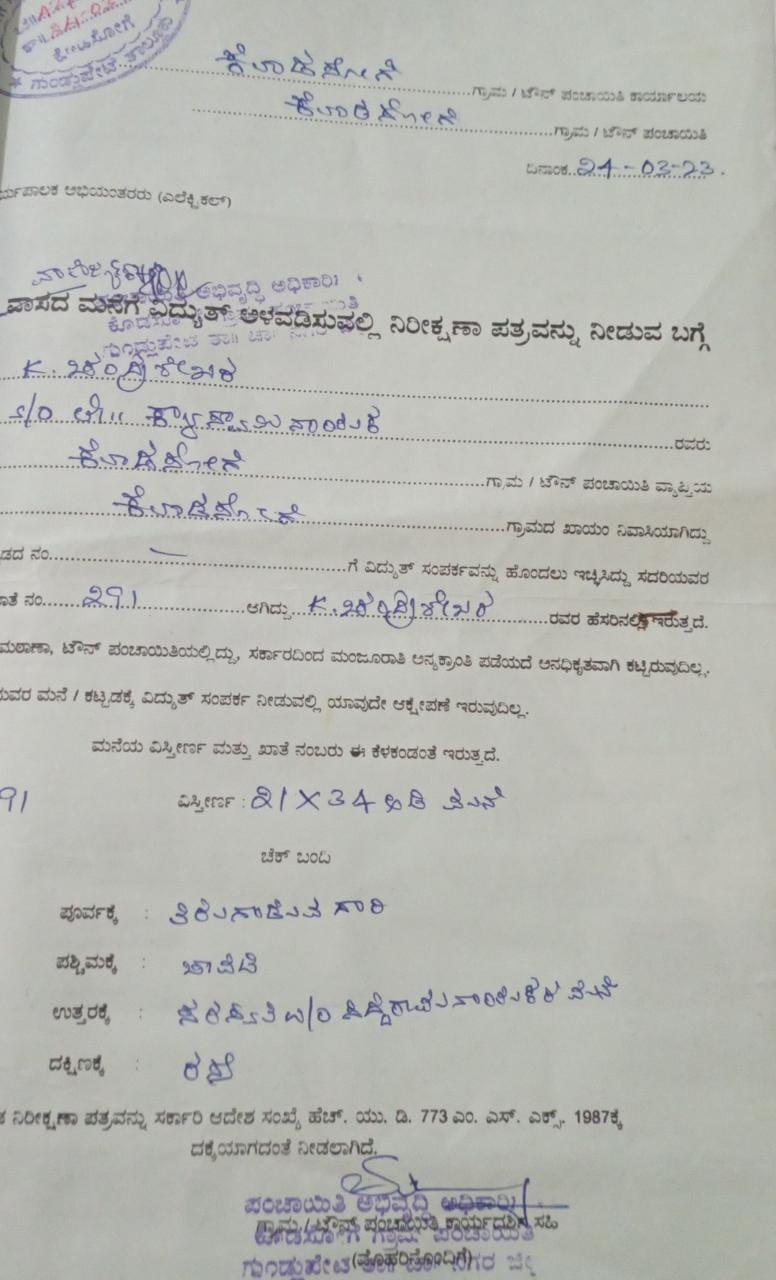 ಕೊಡಸೋಗೆ
ಗುಂಡ್ಲುಪೇಟೆ ತಾಲ್ಲೂಕು
ಕೊಡಸೋಗೆ ಗ್ರಾಮ / ಟೌನ್ ಪಂಚಾಯಿತಿ ಕಾರ್ಯಾಲಯ
ಕೊಡಸೋಗೆ ಗ್ರಾಮ / ಟೌನ್ ಪಂಚಾಯಿತಿ
ದಿನಾಂಕ..24-03-23.
ರ್ಯಪಾಲಕ ಅಭಿಯಂತರರು (ಎಲೆಕ್ಟ್ರಿಕಲ್)
ಅಭಿವೃದ್ಧಿ ಅಧಿಕಾರಿ
ವಾಸದ ಮನೆಗೆ ವಿದ್ಯುತ್ ಅಳವಡಿಸುವಲ್ಲಿ ನಿರೀಕ್ಷಣಾ ಪತ್ರವನ್ನು ನೀಡುವ ಬಗ್ಗೆ
K. ಚಂದ್ರಶೇಖರ
S/O ಲೇ॥ ರವರು
ಕೊಡಸೋಗೆ ಗ್ರಾಮ / ಟೌನ್ ಪಂಚಾಯಿತಿ ವ್ಯಾಪ್ತಿಯ
ಕೊಡಸೋಗೆ ಗ್ರಾಮದ ಖಾಯಂ ನಿವಾಸಿಯಾಗಿದ್ದು
ಡದ ನಂ. — ಗೆ ವಿದ್ಯುತ್ ಸಂಪರ್ಕವನ್ನು ಹೊಂದಲು ಇಚ್ಛಿಸಿದ್ದು ಸದರಿಯವರ
ಾತೆ ನಂ. 291 ಆಗಿದ್ದು K. ಚಂದ್ರಶೇಖರ ರವರ ಹೆಸರಿನಲ್ಲಿ ಇರುತ್ತದೆ.
ಮಠಾಣಾ, ಟೌನ್ ಪಂಚಾಯಿತಿಯಲ್ಲಿದ್ದು, ಸರ್ಕಾರದಿಂದ ಮಂಜೂರಾತಿ ಅನ್ಯಕ್ರಾಂತಿ ಪಡೆಯದೆ ಅನಧಿಕೃತವಾಗಿ ಕಟ್ಟಿರುವುದಿಲ್ಲ.
ುವರ ಮನೆ / ಕಟ್ಟಡಕ್ಕೆ ವಿದ್ಯುತ್ ಸಂಪರ್ಕ ನೀಡುವಲ್ಲಿ ಯಾವುದೇ ಆಕ್ಷೇಪಣೆ ಇರುವುದಿಲ್ಲ.
ಮನೆಯ ವಿಸ್ತೀರ್ಣ ಮತ್ತು ಖಾತೆ ನಂಬರು ಈ ಕೆಳಕಂಡಂತೆ ಇರುತ್ತದೆ.
91 ವಿಸ್ತೀರ್ಣ : 21X34 ಅಡಿ ಮನೆ
ಚೆಕ್ ಬಂದಿ
ಪೂರ್ವಕ್ಕೆ : ತಿರುಗಾಡುವ ಗಾಡಿ
ಪಶ್ಚಿಮಕ್ಕೆ : ಚಾವಡಿ
ಉತ್ತರಕ್ಕೆ : ಸರಸ್ವತಿ W/O ಸಿದ್ದರಾಮನಾಯಕರ ಮನೆ
ದಕ್ಷಿಣಕ್ಕೆ : ರಸ್ತೆ
ನಿರೀಕ್ಷಣಾ ಪತ್ರವನ್ನು ಸರ್ಕಾರಿ ಆದೇಶ ಸಂಖ್ಯೆ ಹೆಚ್. ಯು. ಡಿ. 773 ಎಂ. ಎಸ್. ಎಕ್ಸ್. 1987ಕ್ಕೆ
ದಕ್ಕೆಯಾಗದಂತೆ ನೀಡಲಾಗಿದೆ.
ಪಂಚಾಯಿತಿ ಅಭಿವೃದ್ಧಿ ಅಧಿಕಾರಿ
ಗ್ರಾಮ / ಟೌನ್ ಪಂಚಾಯಿತಿ ಕಾರ್ಯದರ್ಶಿ ಸಹಿ
ಕೊಡಸೋಗೆ ಗ್ರಾಮ ಪಂಚಾಯಿತಿ
(ಮೊಹರಿನೊಂದಿಗೆ)